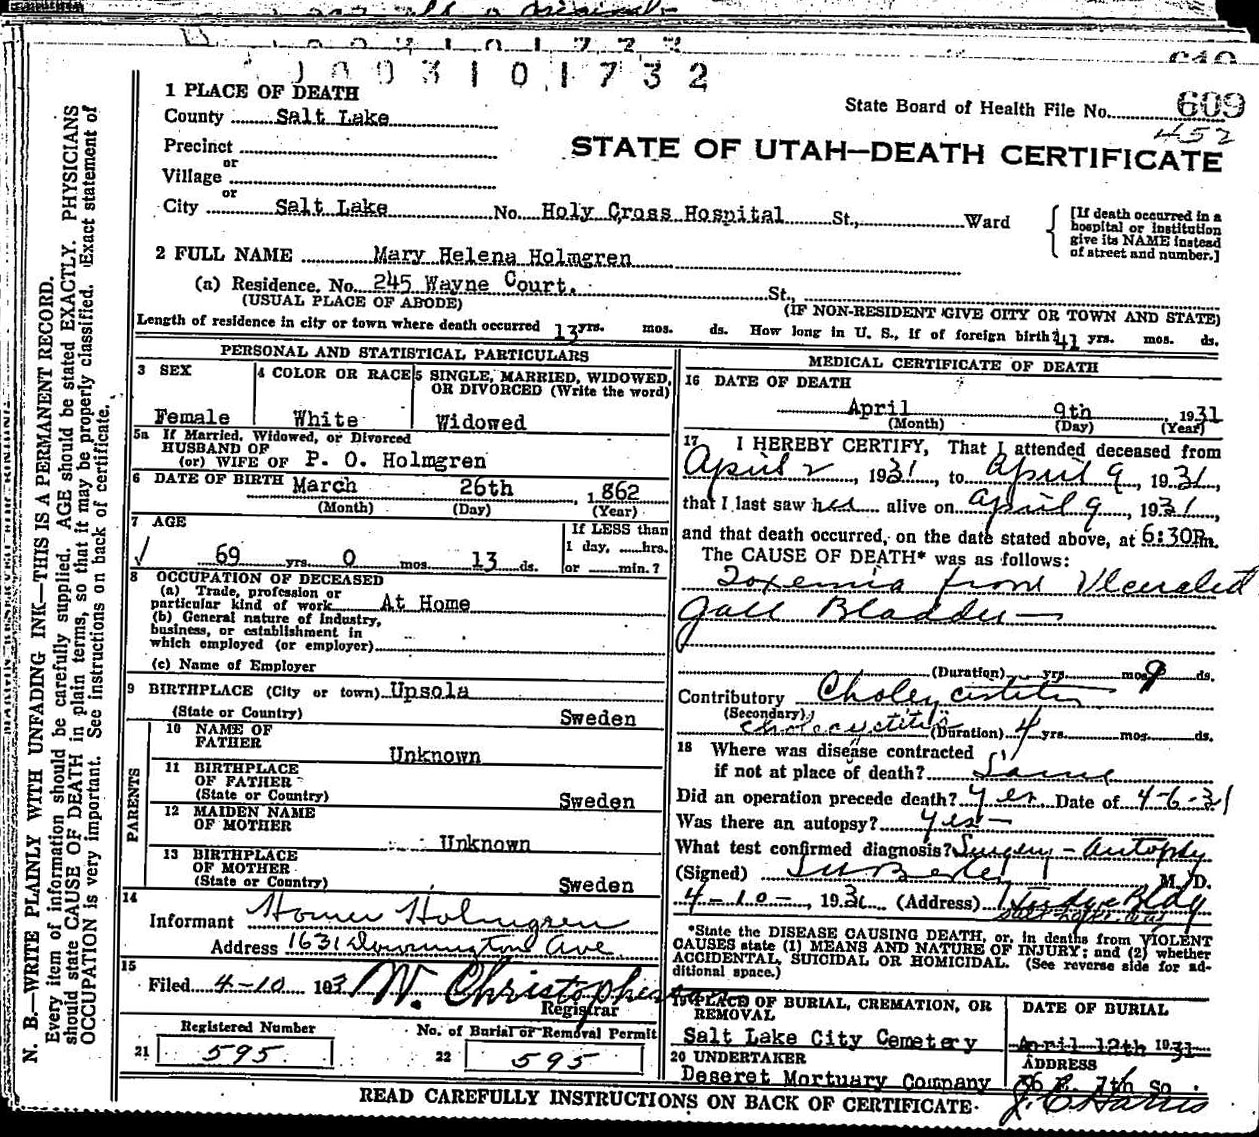 1003101732
609
452
State Board of Health File No.
STATE OF UTAH—DEATH CERTIFICATE
1 PLACE OF DEATH
County Salt Lake
Precinct
or
Village
or
City Salt Lake No. Holy Cross Hospital St., Ward
[If death occurred in a hospital or institution give its NAME instead of street and number.]
2 FULL NAME Mary Helena Holmgren
(a) Residence. No. 245 Wayne Court. St.,
(USUAL PLACE OF ABODE) (IF NON-RESIDENT GIVE CITY OR TOWN AND STATE)
Length of residence in city or town where death occurred 13 yrs. mos. ds. How long in U. S., if of foreign birth? 41 yrs. mos. ds.
PERSONAL AND STATISTICAL PARTICULARS
3 SEX
Female
4 COLOR OR RACE
White
5 SINGLE, MARRIED, WIDOWED, OR DIVORCED (Write the word)
Widowed
5a If Married, Widowed, or Divorced
HUSBAND OF
(or) WIFE OF P. O. Holmgren
6 DATE OF BIRTH March 26th, 1862
(Month) (Day) (Year)
7 AGE
69 yrs. 0 mos. 13 ds.
If LESS than
1 day, hrs.
or min.?
8 OCCUPATION OF DECEASED
(a) Trade, profession or
particular kind of work At Home
(b) General nature of industry,
business, or establishment in
which employed (or employer)
(c) Name of Employer
9 BIRTHPLACE (City or town) Upsola
(State or Country) Sweden
PARENTS
10 NAME OF
FATHER Unknown
11 BIRTHPLACE
OF FATHER
(State or Country) Sweden
12 MAIDEN NAME
OF MOTHER
Unknown
13 BIRTHPLACE
OF MOTHER
(State or Country) Sweden
14
Informant Homer Holmgren
Address 1631 Downington Ave
15
Filed 4-10 193 W. Christopherson
Registrar
Registered Number
21 595
No. of Burial or Removal Permit
22 595
MEDICAL CERTIFICATE OF DEATH
16 DATE OF DEATH
April 9th, 1931
(Month) (Day) (Year)
17 I HEREBY CERTIFY, That I attended deceased from
April 2, 1931, to April 9, 1931,
that I last saw her alive on April 9, 1931,
and that death occurred, on the date stated above, at 6:30Pm.
The CAUSE OF DEATH* was as follows:
Toxemia from Ulcerated
Gall Bladder—
(Duration) yrs. mos. 9 ds.
Contributory Choleycistitis
(Secondary)
cholecystitis (Duration) 4 yrs. mos. ds.
18 Where was disease contracted
if not at place of death? Same
Did an operation precede death? Yes Date of 4-6-31
Was there an autopsy? Yes—
What test confirmed diagnosis? Surgery - Autopsy
(Signed) M. D.
4-10-, 1931 (Address) Judge Bldg
*State the DISEASE CAUSING DEATH, or, in deaths from VIOLENT
CAUSES state (1) MEANS AND NATURE OF INJURY; and (2) whether
ACCIDENTAL, SUICIDAL OR HOMICIDAL. (See reverse side for ad-
ditional space.)
19 PLACE OF BURIAL, CREMATION, OR
REMOVAL
Salt Lake City Cemetery
DATE OF BURIAL
April 12th 1931
20 UNDERTAKER
Deseret Mortuary Company
ADDRESS
36 E. 7th So.
J. C. Harris
READ CAREFULLY INSTRUCTIONS ON BACK OF CERTIFICATE.
N. B.—WRITE PLAINLY WITH UNFADING INK—THIS IS A PERMANENT RECORD.
Every item of information should be carefully supplied. AGE should be stated EXACTLY. PHYSICIANS
should state CAUSE OF DEATH in plain terms, so that it may be properly classified. Exact statement of
OCCUPATION is very important. See Instructions on back of certificate.